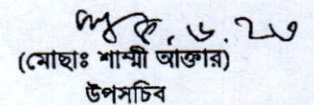 ৬.২৩
(মোছাঃ শাম্মী আক্তার)
উপসচিব